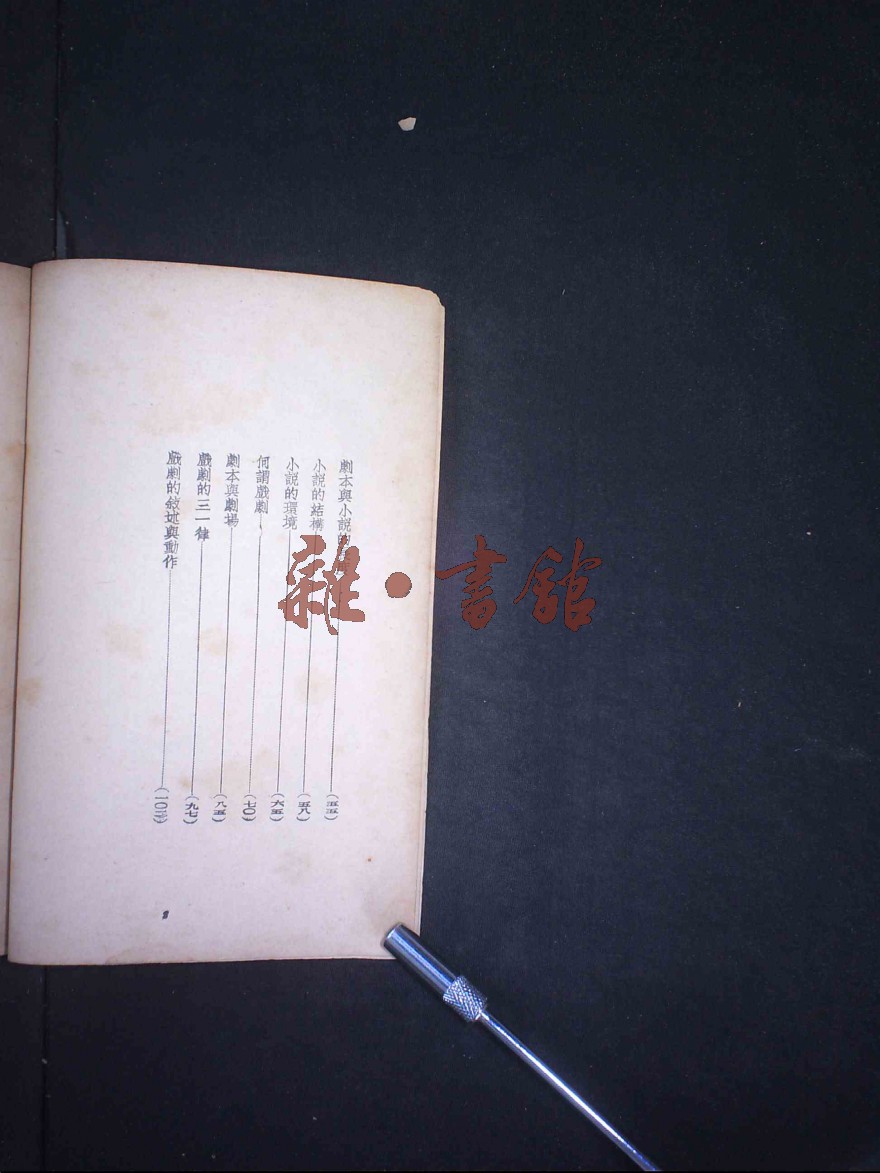 劇本與小說的 (五五)
小說的結構 (五八)
小說的環境 (六五)
何謂戲劇 (七〇)
劇本與劇場 (八五)
戲劇的三一律 (九七)
戲劇的敘述與動作
雜·書館